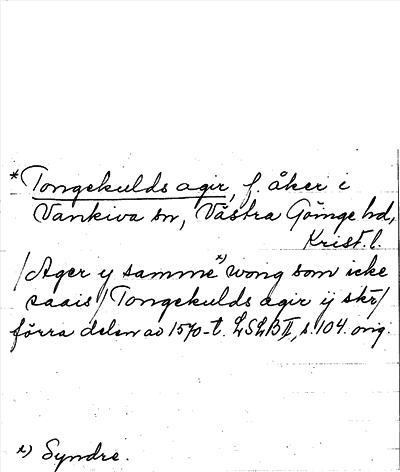 *Tongekulds agir, f. åker i
Vankiva sn, Västra Göinge hd,
Krist. l.
/Ager y samme x) wong som icke
saais/ Tongekulds agir ÿ skr/
förra delen av 1570-t. LSLB II, s. 104. orig.
x) Syndre.